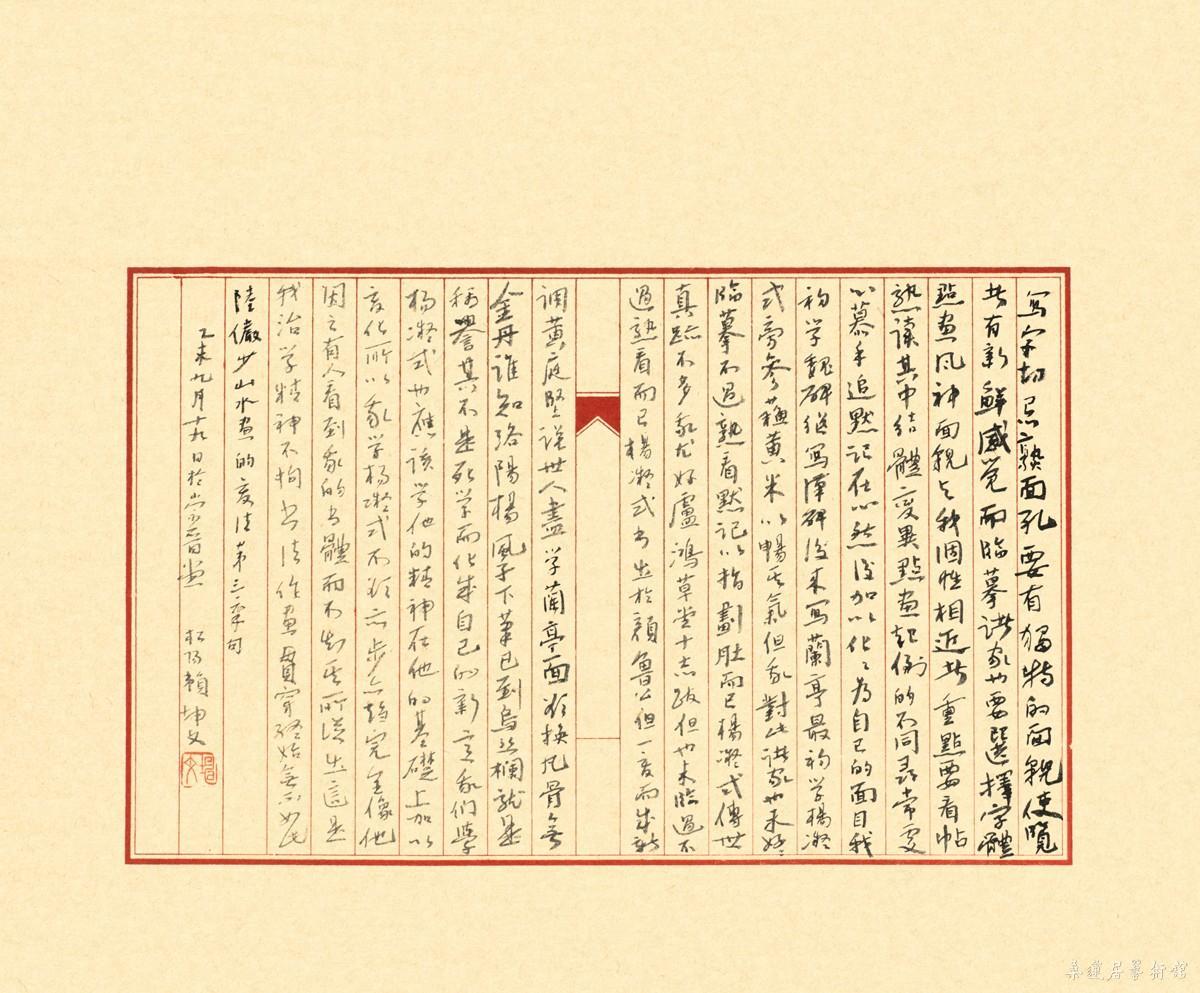 寫字切忌熟面孔要有獨特的面貌使覽
者有新鮮感覺而臨摹諸家也要選擇字體
點畫風神面貌與我個性相近者重點要看帖
熟讀其中結體變異點畫起倒的不同尋常處
心慕手追默記在心然後加以化之為自己的面目我
初學魏碑繼寫漢碑後來寫蘭亭最初學楊凝
式旁參蘇黃米以暢其氣但我對此諸家也未好好
臨摹不過熟看默記以指劃肚而已楊凝式傳世
真跡不多我尤好盧鴻草堂十志跋但也未臨過不
過熟看而已楊凝式書出於顏魯公但一變而成新
調黃庭堅説世人盡學蘭亭面欲換凡骨無
金丹誰知洛陽楊風子下筆已到烏絲欄就是
稱譽其不是死學而化成自己的新意我們學
楊凝式也應該學他的精神在他的基礎上加以
變化所以我學楊凝式不欲亦步亦趨完全像他
因之有人看到我的書體而不知其所從出這是
我治學精神不拘書法作畫貫穿終始無不如此
陸儼少山水畫的變法第三章句
乙未九月十九日於 松陽賴坤文
桑蓮居藝術館